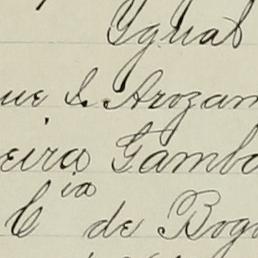 Igual
ue L. Arozam
eira Gambo
C ia de Bogo